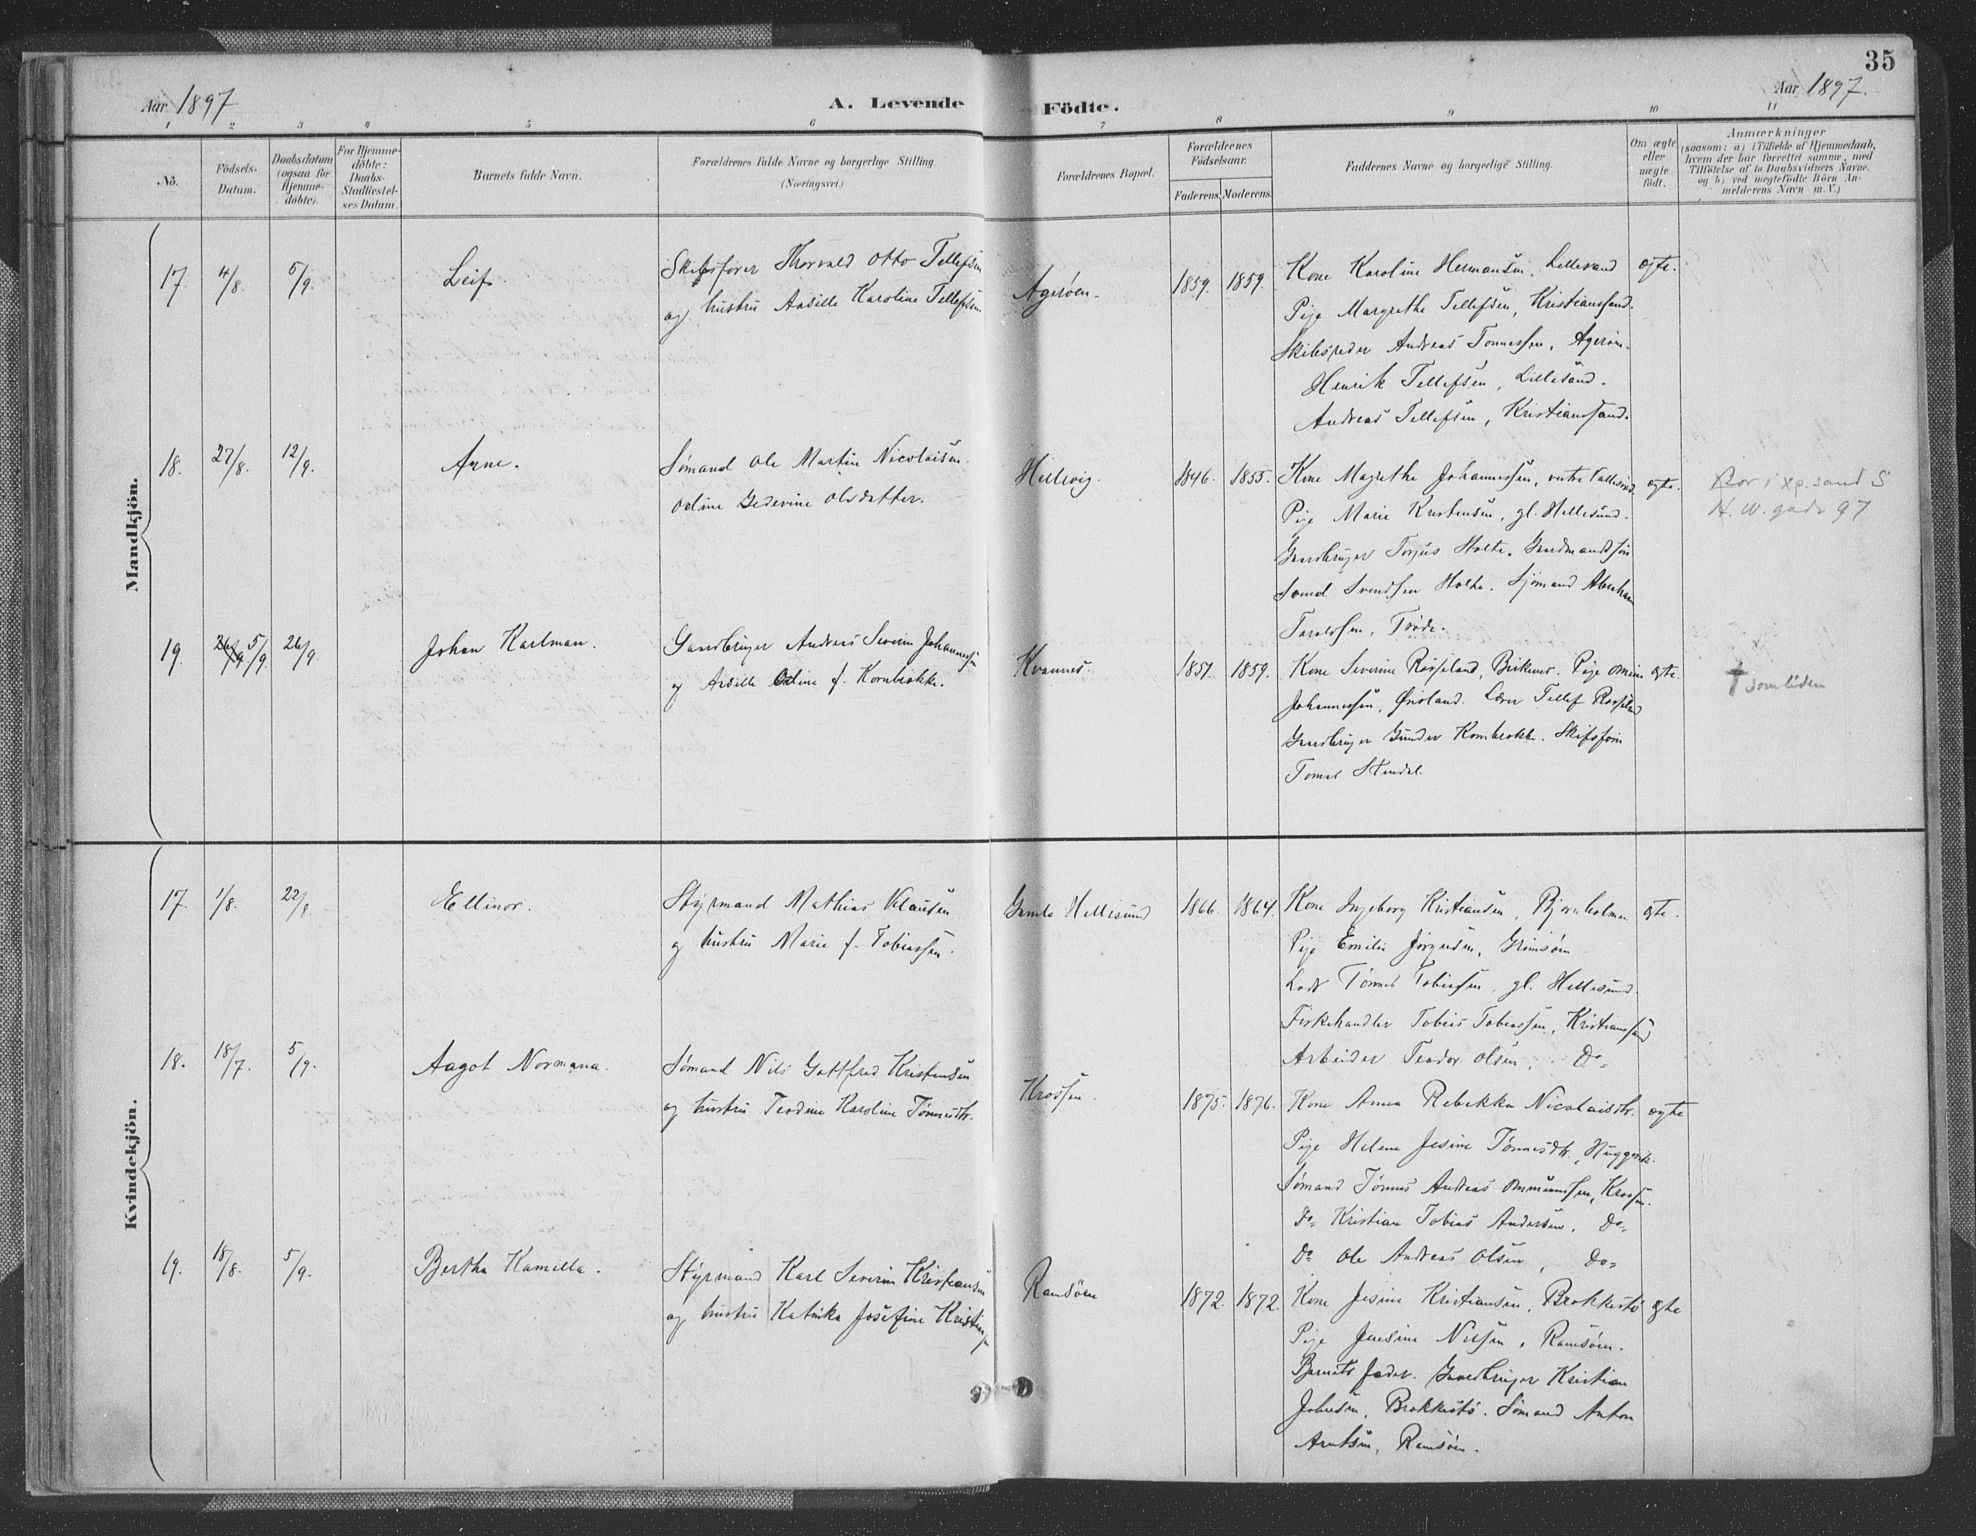 35
Aar 1897
A. Levende
Födte.
Aar 1897.
1 2 3 4 5 6 7 8 9 10 11
No.
Födsels-
Datum.
Daabsdatum
(ogsaa for
Hjemme-
döbte).
For Hjemme-
döbte:
Daabs-
Stadfæstel-
ses Datum.
Barnets fulde Navn.
Forældrenes fulde Navne og borgerlige Stilling.
(Næringsvei.)
Forældrenes Bopæl.
Forældrenes
Födselsaar.
Faderens.
Moderens.
Faddernes Navne og borgerlige Stilling.
Om ægte
eller
uægte
födt.
Anmærkninger
(saasom: a) i Tilfælde af Hjemmedaab,
hvem der har forrettet samme, med
Tilföielse af to Daabsvidners Navne,
og b) ved uægtefödte Börn An-
melderens Navn m. V.)
Mandkjön.
17. 4/8. 5/9. Leif. Skibsfører Thorvald Otto Tellefsen
og hustru Aasille Karoline Tellefsen
Agerøen. 1859. 1859. Kone Karoline Hermansen, Lillesand ægte.
Pige Margrethe Tellefsen, Kristianssand.
Skibsreder Andreas Tønnessen, Agerøen.
Henrik Tellefsen, Lillesand.
Andreas Tellefsen, Kristianssand.
18. 27/8. 12/9. Arne. Sømand Ole Martin Nicolaisen.
Odline Gedevine Olsdatter.
Hellevig. 1846. 1855. Kone Magrethe Johannessen, ægte.
Pige Marie Kristensen, gl. Hellesund.
Gaardbruger Torjus Holte. Gaardmandssøn
Svend Svendsen Holte. Sjømand Abraham
Taraldsen, Trøde.
Bor i Xp.sand S
H. W. gade 97
19. 26/9 5/9. 26/9 Johan Karlman. Gaardbruger Andreas Severin Johannessen
og Aasille Odline f. Kornbrekke.
Kvannes. 1857. 1859. Kone Severine Rosseland, Birkenes. Pige ægte.
Johannessen, Øvsland. Lærer Tellef Rosseland
Gaardbruger Gunder Kornbrekke. Skibsfører
Tomas Stendal.
† som liden
Kvindekjön.
17. 1/8. 22/8. Ellinor. Styrmand Mathias Klausen
og hustru Marie f. Tobiassen.
Gamle Hellesund 1866. 1864. Kone Ingeborg Kristiansen, Bjørnholmen ægte.
Pige Emilie Jørgensen, Grimsøen
Lods Tønnes Tobiassen, gl. Hellesund.
Fiskehandler Tobias Tobiassen, Kristianssand
Arbeider Teodor Olsen, Do-
18. 18/7. 5/9. Aagot Normana. Sømand Nils Gottfred Kristensen
og hustru Teodine Karoline Tønnesdtr.
Krossen. 1875. 1876. Kone Anna Rebekka Nicolaisdtr. ægte
Pige Helene Jesine Tønnesdtr.,
Sømand Tønnes Andreas Ommunssen, Krossen.
Do- Kristian Tobias Andersen, Do-
Do Ole Andreas Olsen, Do-
19. 18/8. 5/9. Bertha Kamilla. Styrmand Karl Severin Kristiansen
og hustru Katrika Josefine Kristiansen
Ramsøen 1872. 1872. Kone Jesine Kristiansen, Brekkestø ægte
Pige Jensine Nilsen, Ramsøen.
Barnets fader. Gaardbruger Kristian
Johnsen, Brekkestø. Sømand Anton
Arntsen, Ramsøen.